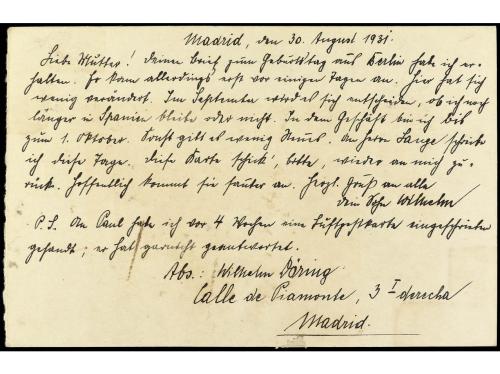 Madrid, den 30. August 1931.
Liebe Mutter! Deinen Brief zum Geburtstag aus Berlin habe ich er-
halten. Er kam allerdings erst vor einigen Tagen an. Hier hat sich
wenig verändert. Im September wird es sich entscheiden, ob ich noch
länger in Spanien bleibe oder nicht. In dem Geschäft bin ich bis
zum 1. Oktober. Sonst gibt es wenig Neues. An Herrn Lange schrieb
ich diese Tage. Diese Karte schick', bitte, wieder an mich zu-
rück. Hoffentlich kommt sie sauber an. Herzl. Gruß an alle
dein Sohn Wilhelm
P.S. An Paul habe ich vor 4 Wochen eine Luftpostkarte eingeschrieben
gesandt; er hat garnicht geantwortet.
Abs.: Wilhelm Döring
Calle de Piamonte, 3 I derecha
Madrid.